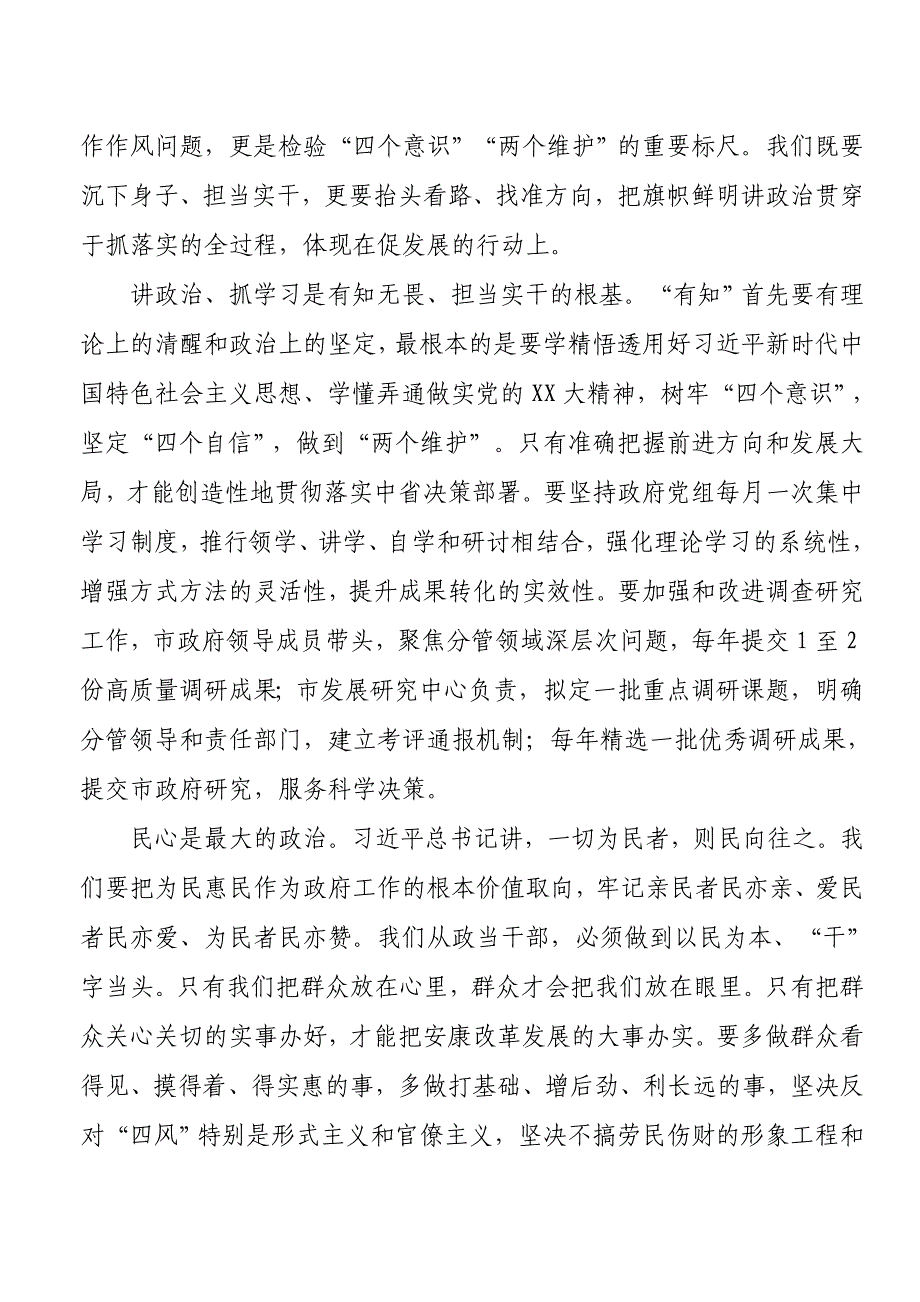 作作风问题，更是检验“四个意识”“两个维护”的重要标尺。我们既要
沉下身子、担当实干，更要抬头看路、找准方向，把旗帜鲜明讲政治贯穿
于抓落实的全过程，体现在促发展的行动上。
讲政治、抓学习是有知无畏、担当实干的根基。“有知”首先要有理
论上的清醒和政治上的坚定，最根本的是要学精悟透用好习近平新时代中
国特色社会主义思想、学懂弄通做实党的 XX 大精神，树牢“四个意识”，
坚定“四个自信”，做到“两个维护”。只有准确把握前进方向和发展大
局，才能创造性地贯彻落实中省决策部署。要坚持政府党组每月一次集中
学习制度，推行领学、讲学、自学和研讨相结合，强化理论学习的系统性，
增强方式方法的灵活性，提升成果转化的实效性。要加强和改进调查研究
工作，市政府领导成员带头，聚焦分管领域深层次问题，每年提交 1 至 2
份高质量调研成果；市发展研究中心负责，拟定一批重点调研课题，明确
分管领导和责任部门，建立考评通报机制；每年精选一批优秀调研成果，
提交市政府研究，服务科学决策。
民心是最大的政治。习近平总书记讲，一切为民者，则民向往之。我
们要把为民惠民作为政府工作的根本价值取向，牢记亲民者民亦亲、爱民
者民亦爱、为民者民亦赞。我们从政当干部，必须做到以民为本、“干”
字当头。只有我们把群众放在心里，群众才会把我们放在眼里。只有把群
众关心关切的实事办好，才能把安康改革发展的大事办实。要多做群众看
得见、摸得着、得实惠的事，多做打基础、增后劲、利长远的事，坚决反
对“四风”特别是形式主义和官僚主义，坚决不搞劳民伤财的形象工程和